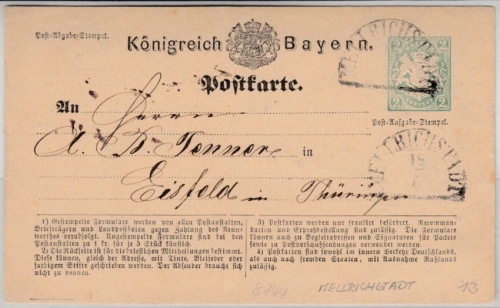 Post-Abgabe-Stempel.
Königreich Bayern.
MELLRICHSTADT
2 2
2 2
Postkarte.
Post-Aufgabe-Stempel.
An Herrn
A. B. Tenner in
MELLRICHSTADT
18
Eisfeld in Thüringen
1) Gestempelte Formulare werden von allen Postanstalten,
Briefträgern und Landpostboten gegen Zahlung des Nenn-
werthes verabfolgt. Ungestempelte Formulare sind bei den
Postanstalten zu 1 kr. für je 5 Stück käuflich.
2) Die Rückseite ist für die brieflichen Mittheilungen bestimmt.
Diese können, gleich der Adresse, mit Tinte, Bleifeder oder
farbigem Stifte geschrieben werden. Der Absender braucht sich
nicht zu nennen.
3) Postkarten werden nur frankirt befördert. Recomman-
dation und Expreßbestellung sind zulässig. Die Formulare
können auch zu Begleitadressen und Signaturen für Packete
sowie zu Postvorschußsendungen verwendet werden.
4) Postkarten sind sowohl im innern Verkehr Deutschlands,
als auch nach fremden Staaten, mit Ausnahme Rußlands
zulässig.
8744 MELLRICHSTADT 13